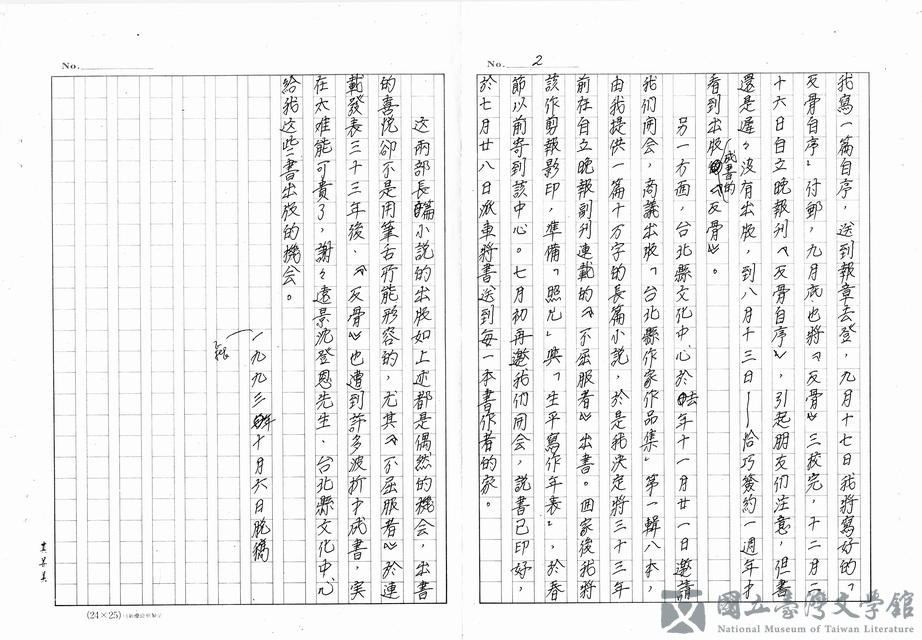 No. 2
我寫一篇自序，送到報章去登，九月十七日我將寫好的「
反骨自序」付郵，九月底也將《反骨》三校完，十二月二
十六日自立晚報刊《反骨自序》，引起朋友们注意，但書
還是遲々沒有出版，到八月十三日——恰巧簽約一週年才
看到出版成書的《反骨》。
另一方面，台北縣文化中心於去年十一月廿一日邀請
我们開会，商議出版「台北縣作家作品集」第一輯八本，
由我提供一篇十万字的長篇小說，於是我決定將三十三年
前在自立晚報副刊連載的《不屈服者》出書。回家後我將
該作剪報影印，準備「照片」與「生平寫作年表」，於春
節以前寄到該中心。七月初再邀我们開会，説書已印好，
於七月廿八日派車將書送到每一本書作者的家。
No.
這兩部長篇小說的出版如上述都是偶然的機会，出書
的喜悅卻不是用筆舌所能形容的，尤其《不屈服者》於連
載發表三十三年後，《反骨》也遭到許多波折才成書，實
在太難能可貴了，謝々遠景沈登恩先生、台北縣文化中心
給我这些書出版的機会。
一九九三年十月六日脫稿
(24×25)
國立臺灣文學館
National Museum of Taiwan Literature